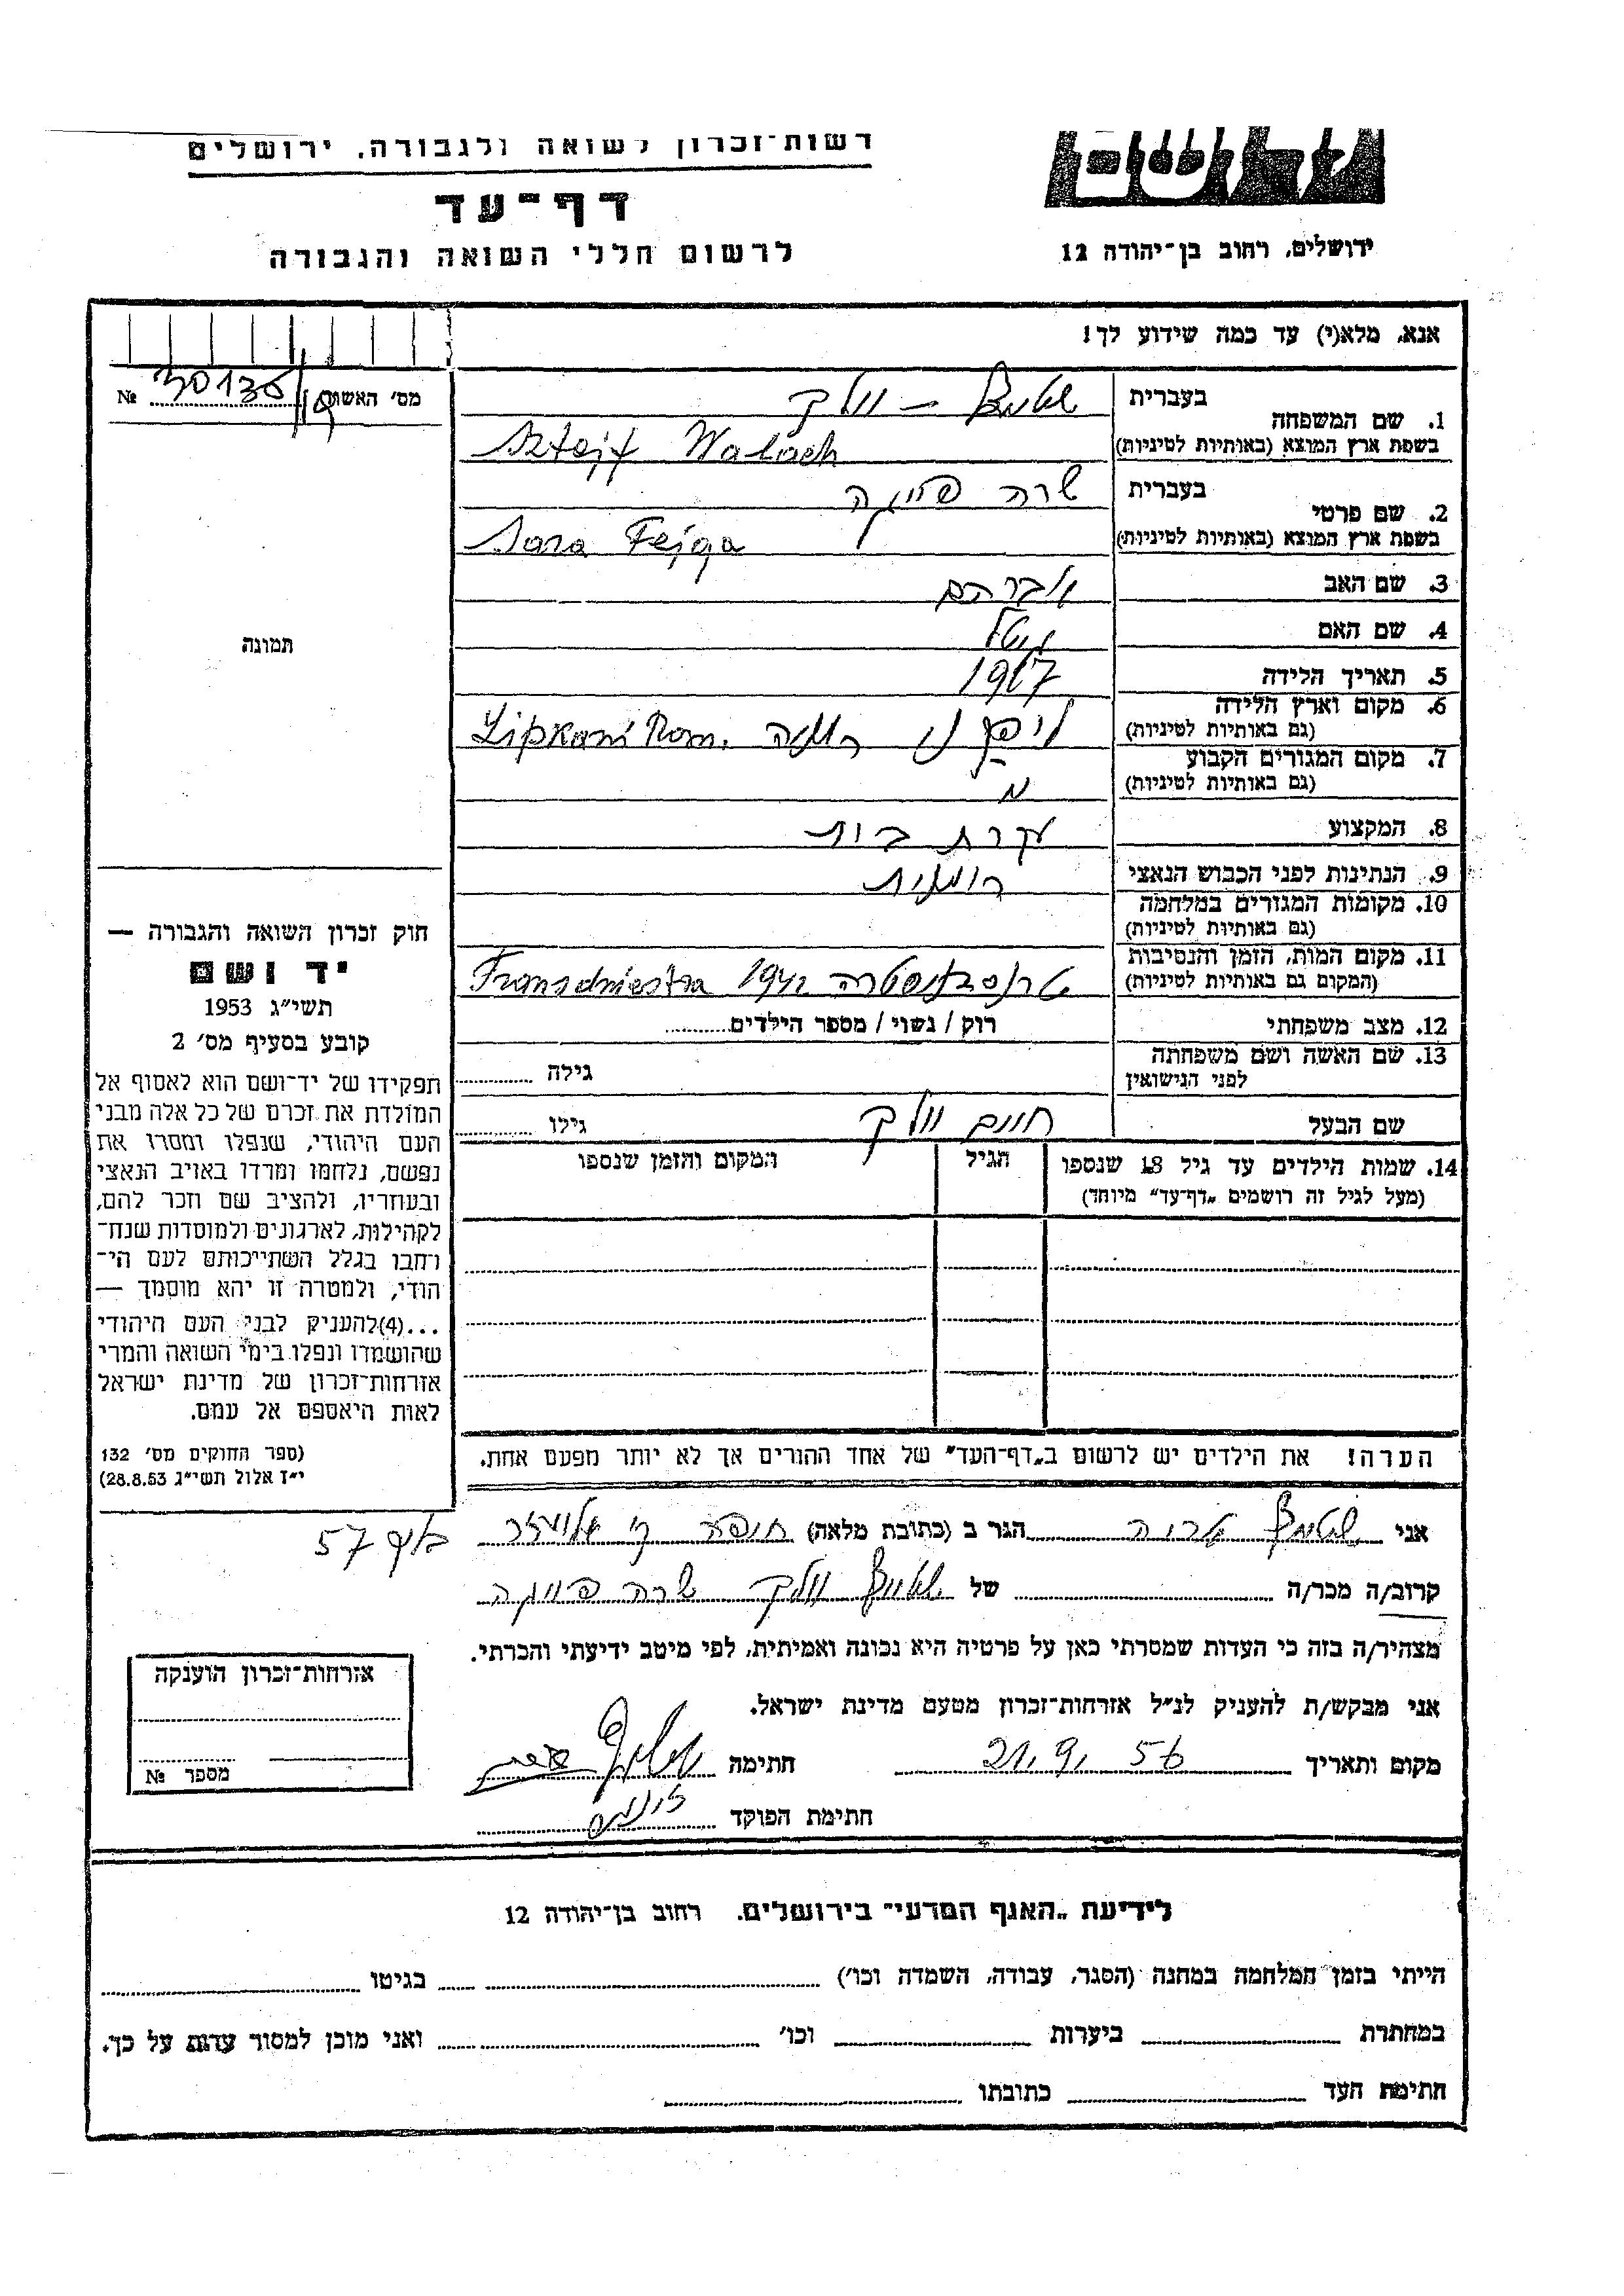 רשות־זכרון לשואה ולגבורה, ירושלים
דף־עד
לרשום חללי השואה והגבורה
ירושלים, רחוב בן־יהודה 12
אנא, מלא(י) עד כמה שידוע לך!
מס׳ האשה № 30136/19
1. שם המשפחה
בעברית שטייף – וולך
בשפת ארץ המוצא (באותיות לטיניות) Sztejf Walach
2. שם פרטי
בעברית שרה פייגה
בשפת ארץ המוצא (באותיות לטיניות) Sara Fejga
3. שם האב אברהם
4. שם האם
5. תאריך הלידה 1917
6. מקום וארץ הלידה
(גם באותיות לטיניות) ליפקני רומניה Lipkani Rom.
7. מקום המגורים הקבוע
(גם באותיות לטיניות)
8. המקצוע עקרת בית
9. הנתינות לפני הכבוש הנאצי רומנית
10. מקומות המגורים במלחמה
(גם באותיות לטיניות)
11. מקום המות, הזמן והנסיבות
(המקום גם באותיות לטיניות) טרנסניסטרה 1942 Transdniestra
12. מצב משפחתי רוק / נשוי / מספר הילדים
13. שם האשה ושם משפחתה
לפני הנישואין גילה
שם הבעל חיים וולך גילו
14. שמות הילדים עד גיל 18 שנספו הגיל המקום והזמן שנספו
(מעל לגיל זה רושמים „דף־עד” מיוחד)
הערה! את הילדים יש לרשום ב„דף־העד” של אחד ההורים אך לא יותר מפעם אחת.
תמונה
חוק זכרון השואה והגבורה —
יד ושם
תשי״ג 1953
קובע בסעיף מס׳ 2
תפקידו של יד־ושם הוא לאסוף אל
המולדת את זכרם של כל אלה מבני
העם היהודי, שנפלו ומסרו את
נפשם, נלחמו ומרדו באויב הנאצי
ובעוזריו, ולהציב שם וזכר להם,
לקהילות, לארגונים ולמוסדות שנח־
רחבו בגלל השתייכותם לעם הי־
הודי, ולמטרה זו יהא מוסמך —
...(4) להעניק לבני העם היהודי
שהושמדו ונפלו בימי השואה והמרי
אזרחות־זכרון של מדינת ישראל
לאות היאספם אל עמם.
(ספר החוקים מס׳ 132
י״ז אלול תשי״ג 28.8.53)
אני שטייף אריה הגר ב (כתובת מלאה) חיפה ק׳ אליעזר 57
קרוב/ה מכר/ה של שטייף וולך שרה פייגה
מצהיר/ה בזה כי העדות שמסרתי כאן על פרטיה היא נכונה ואמיתית, לפי מיטב ידיעתי והכרתי.
אני מבקש/ת להעניק לנ״ל אזרחות־זכרון מטעם מדינת ישראל.
מקום ותאריך 21.9.56 חתימה
חתימת הפוקד
אזרחות־זכרון הוענקה
מספר №
לידיעת „האגף המדעי” בירושלים, רחוב בן־יהודה 12
הייתי בזמן המלחמה במחנה (הסגר, עבודה, השמדה וכו׳) בגיטו
במחתרת ביערות וכו׳ ואני מוכן למסור עדות על כך.
חתימת העד כתובתו